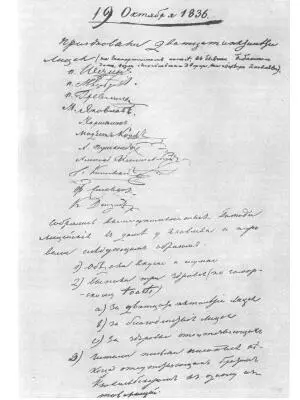 19 Октября 1836.
Праздновали двадцатипятилетие
Лицея
п. Юдин
п. Мясоедов
п. Гревениц
М. Яковлев
Мартынов
Модест Корф
А. Пушкин
Алексей Илличевский
С. Комовский
Ф. Стевен
К. Данзас
Собрались вышеупомянутые Господа
Лицейские в доме у Яковлева и пиро
вали следующим образом:
1) Обедали вкусно и шумно
2) выпили три здоровья (по
toasts)
а) за двадцать пятилетие Лицея
b) за благоденствие Лицея
с) за здоровье отсутствующих
3) читали письма
отсутствующим братом
Кюхельбекером к одному из
товарищей